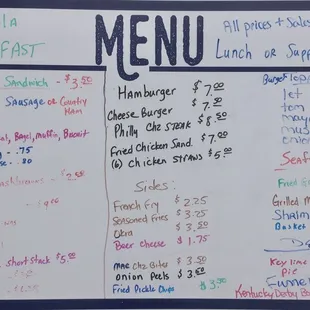 MENU
LA
FAST
All prices + Sales
Lunch or Supp
Sandwich - $3.50
Sausage or Country
Ham
Bagel, Muffin, Biscuit
.75
.80
$2.50
short stack $5.00
Hamburger $7.00
Cheese Burger $7.50
Philly Chz STEAK $8.50
Fried Chicken Sand. $7.00
(6) Chicken Straws $5.00
Sides:
French Fry $2.25
Seasoned Fries $3.25
Okra $3.50
Beer Cheese $1.75
Mac Chz Bites $3.50
Onion Peels $3.50
Fried Pickle Chips $3.50
Burger Tops
let
tom
mayo
mus
onion
Seaf
Fried
Grilled M
Shrimp
Basket
Key lime
Pie
Funnel
Kentucky Derby